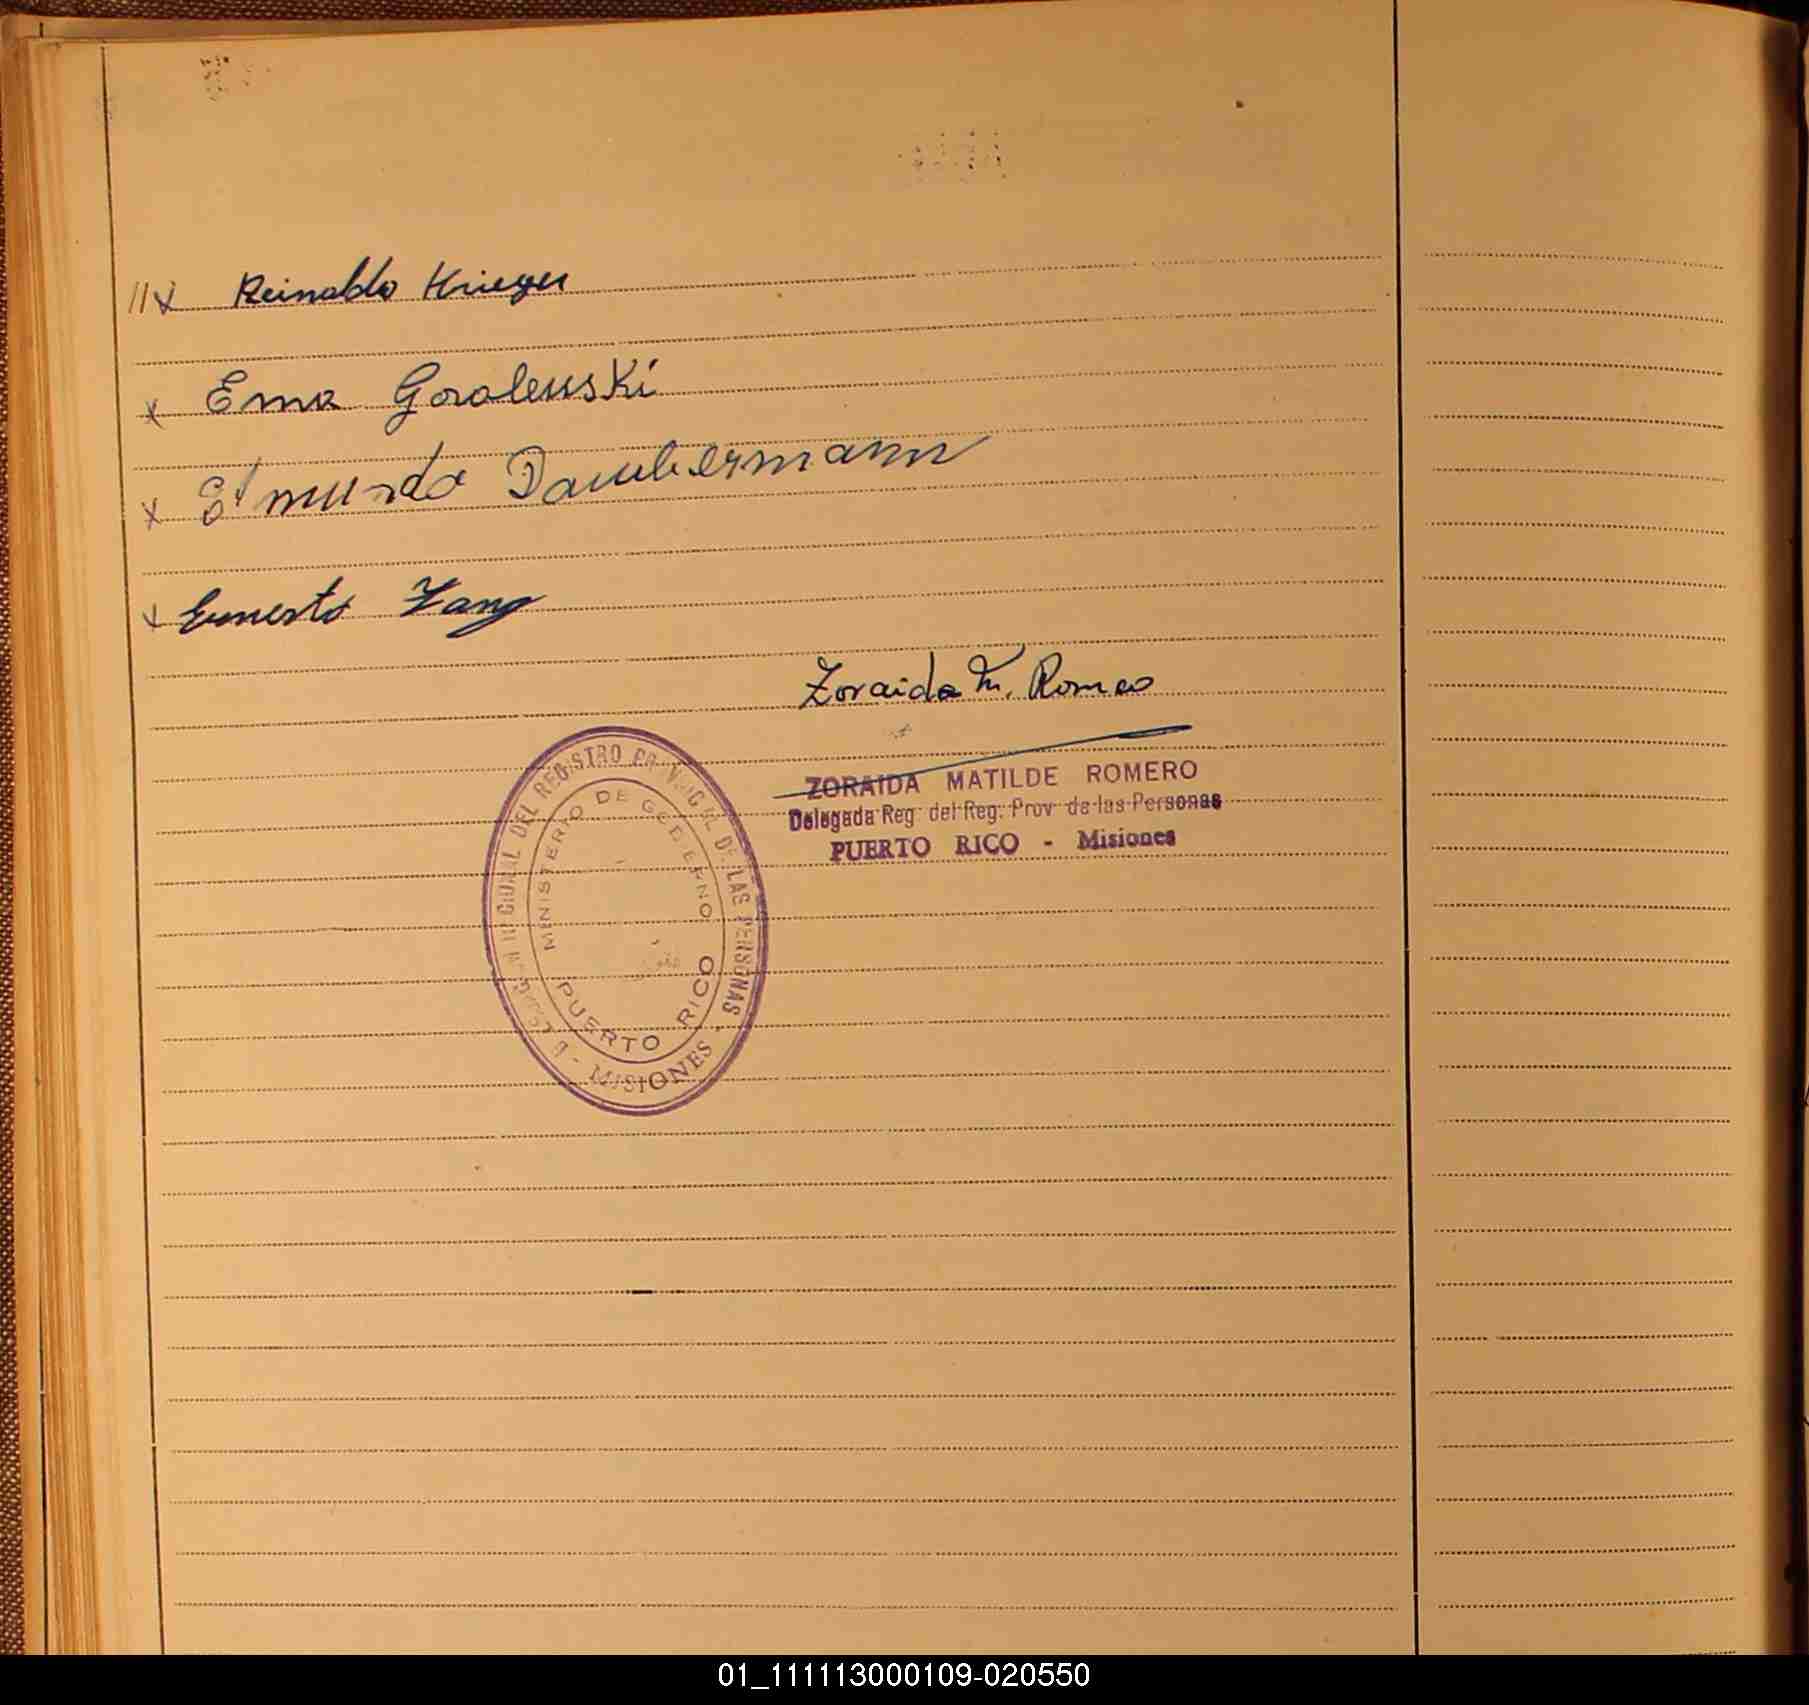 // x Reinaldo Krieger
x Ema Goralewski
x Edmundo Daubermann
x Ernesto Zang
Zoraida M. Romero
ZORAIDA MATILDE ROMERO
Delegada Reg. del Reg. Prov de las Personas
PUERTO RICO - Misiones
DEL REGISTRO PROVINCIAL DE LAS PERSONAS
MINISTERIO DE GOBIERNO
PUERTO RICO
- MISIONES -
01_111113000109-020550